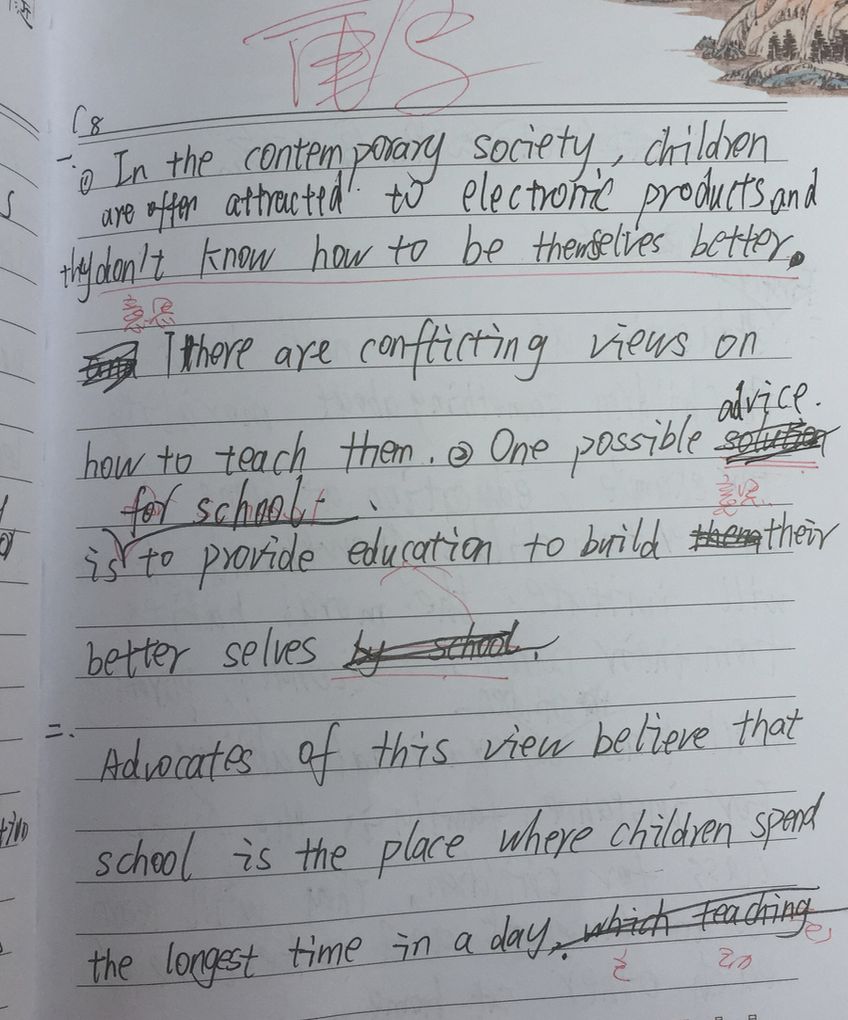 重写
C8
一. ① In the contemporary society, children
are offen attracted to electronic products and
they don't know how to be themselves better.
意思
There are conflicting views on
advice.
how to teach them. ② One possible solution
for school 意思
is to provide education to build them their
better selves by school.
二.
Advocates of this view believe that
school is the place where children spend
the longest time in a day. which teaching